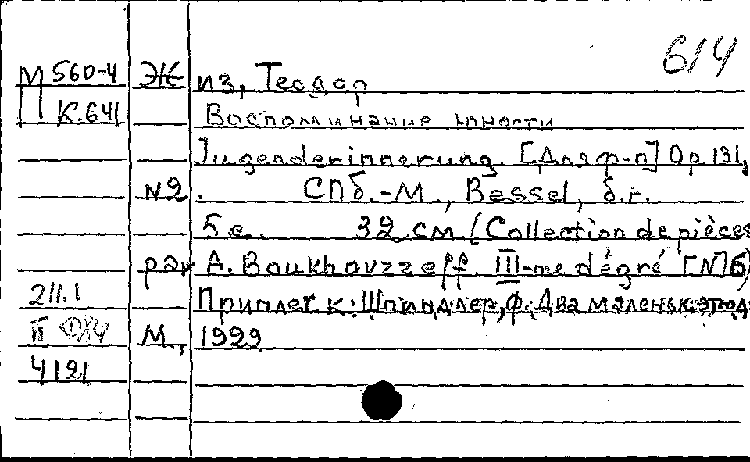 614
М 560-4 Жиз, Теодор
К.641 Воспоминание юности
Jugenderinnerung. [Для ф-п] Op.131,
№2. СПб.-М., Bessel, б.г.
5 с. 32 см (Collection de pièces
par A. Boukhovzzeff. III-me dégré [N]6)
211.1 Приплет к: Шпиндлер, Ф. Два маленьк. этюда
М., 1929
4121